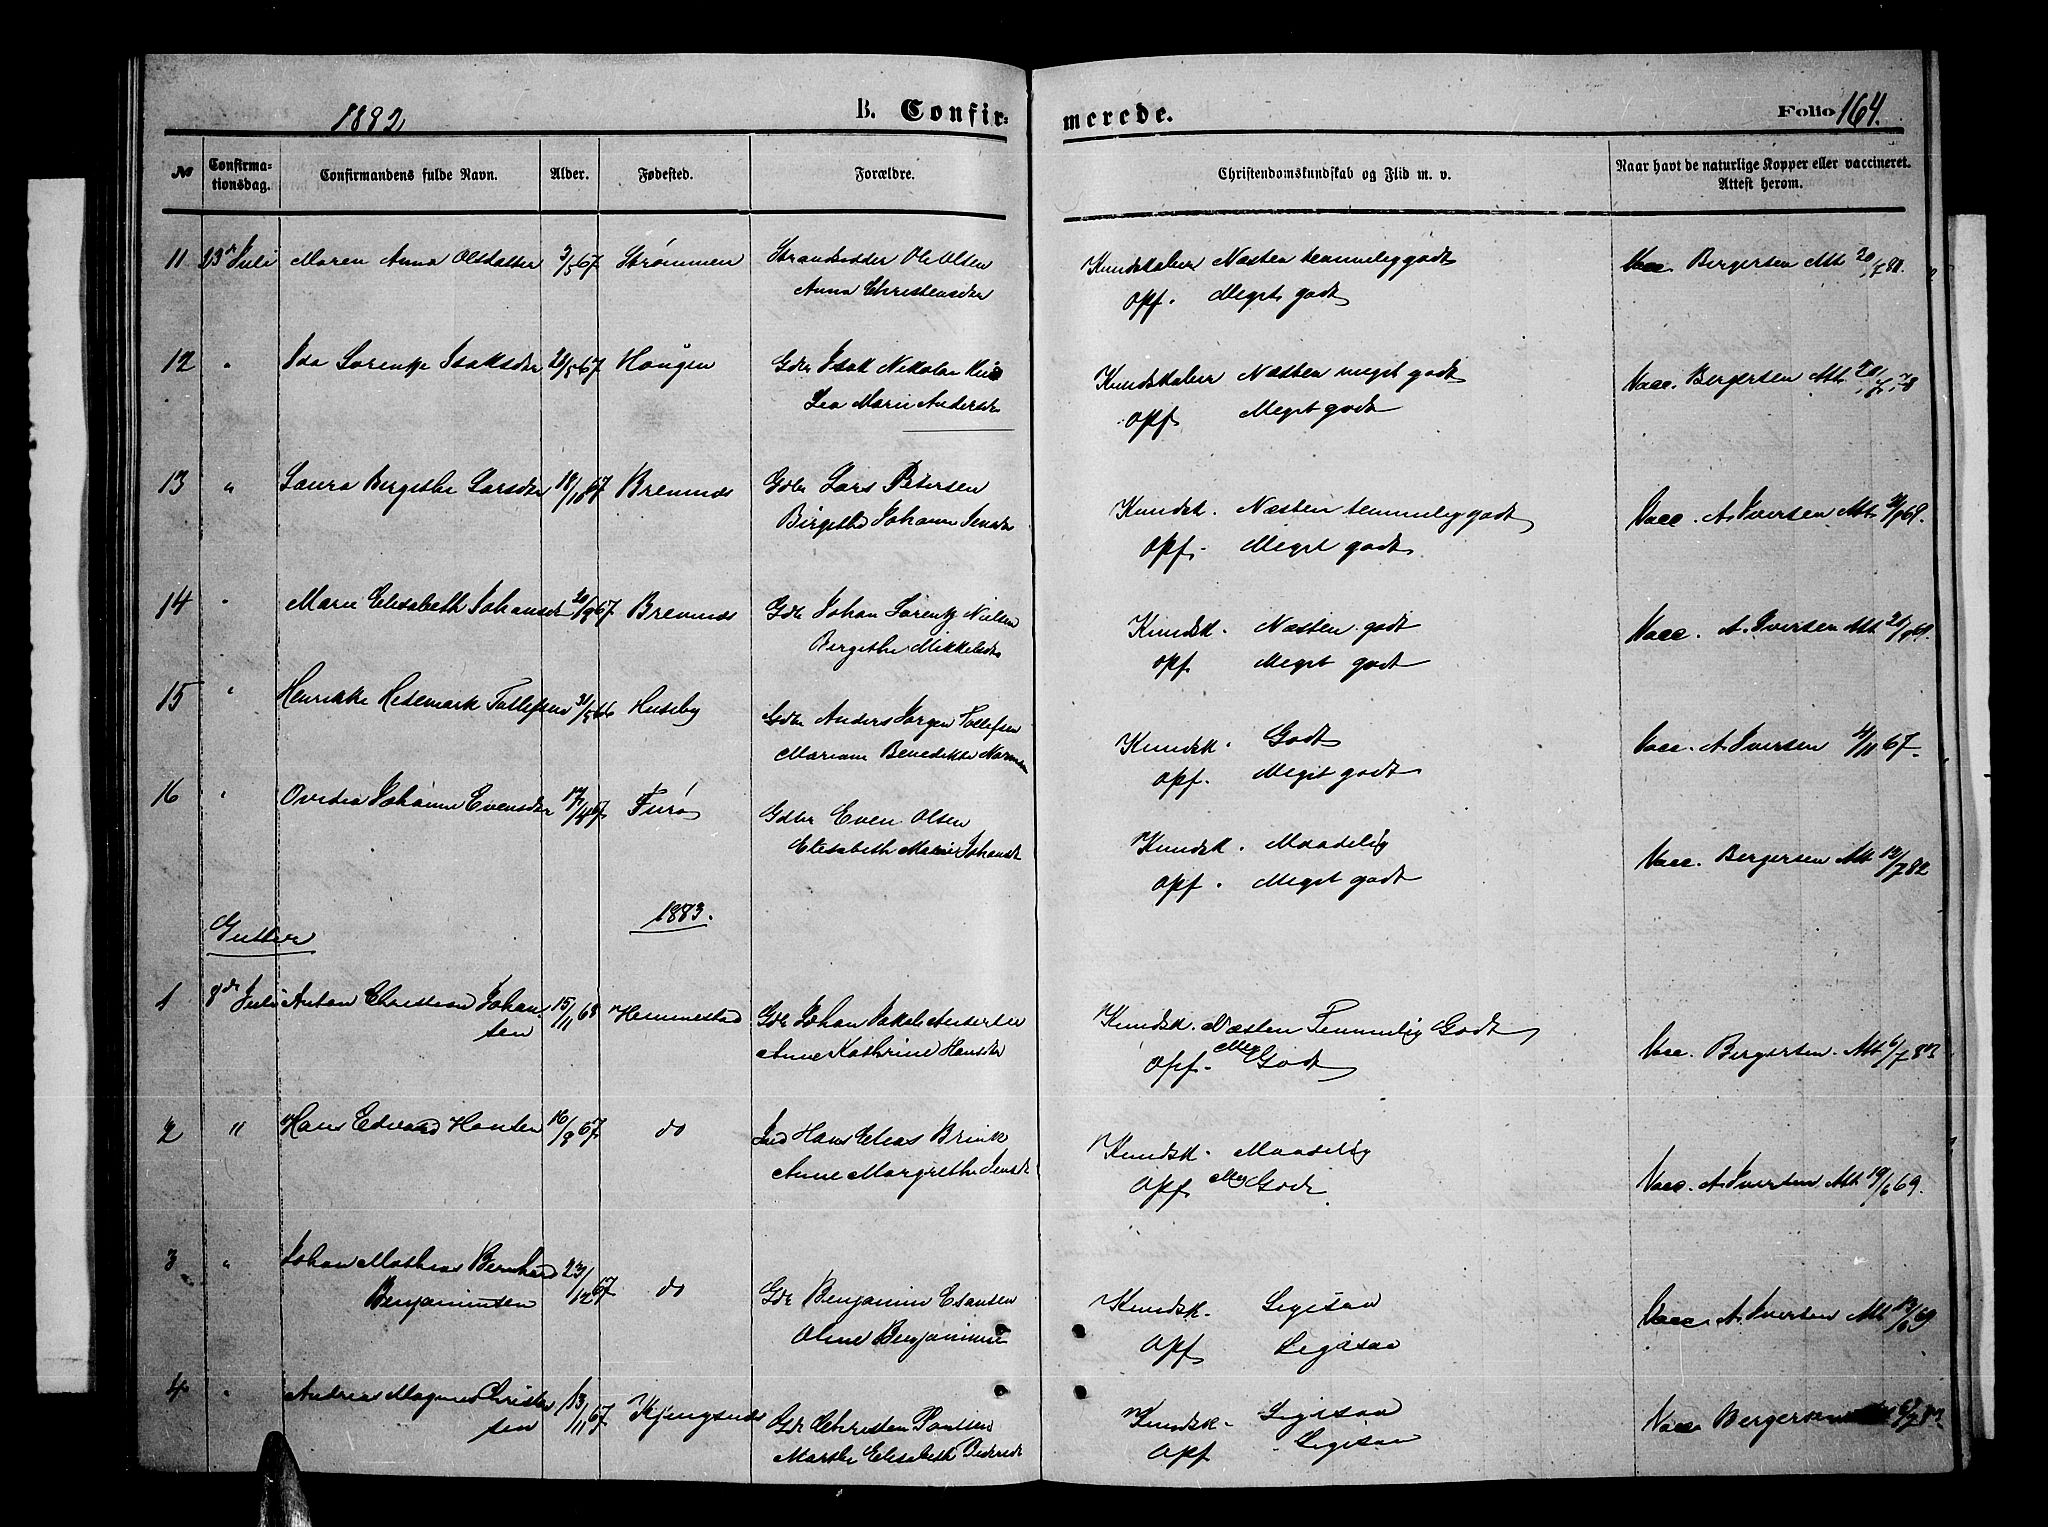 1882
B. Confirmerede.
Folio 164.
No
Confirmationsdag.
Confirmandens fulde Navn.
Alder.
Fødested.
Forældre.
Christendomskundskab og Flid m. v.
Naar havt de naturlige Kopper eller vaccineret. Attest herom.
11 23 Juli Maren Anna Olsdatter 3/5 67 Strømmen Strandsidder Ole Olsen
Anna Christensdtr
Kundskaber Næsten temmelig godt
Opf. Meget godt
Vacc. Bergersen Att 20/7 81.
12 " Ida Lorentze Isaksdtr 21/5 67 Haugen Gdbr Isak Nikolai
Lea Marie Andersdtr
Kundskaber Næsten meget godt
Opf Meget godt
Vacc. Bergersen Att 20/7 78
13 " Laura Bergethe Larsdtr 18/10 67 Bremnes Gdbr Lars Petersen
Birgethe Johanna Jensdtr
Kundsk. Næsten temmelig godt
Opf. Meget godt
Vacc. A. Iversen Att 69.
14 " Marie Elisabeth Johansdtr 20/8 67 Bremnes Gdbr Johan Lorentz Nielsen
Bergethe Mikkelsdtr
Kundsk. Næsten godt
Opf. Meget godt
Vacc. A. Iversen Att 69.
15 " Henrikke Hedemark Tollefsen 31/5 66 Huseby Gdbr Anders Jørgen Tollefsen
Mariane Benedikte
Kundsk. Godt
Opf. Meget godt
Vacc. A. Iversen 4/11 67.
16 " Ovidia Johanne Evensdtr 17/4 67 Furø Gdbr Even Olsen
Elisabeth Marie Johansdtr
Kundsk. Maadelig
Opf. Meget godt
Vacc. Bergersen Att 12/7 82
1883.
Gutter
1 8de Juli Anton Christian Johansen 15/11 68 Hemmestad Gdbr Johan Jakob
Anne Kathrine Hansdtr
Kundsk. Næsten Temmelig Godt
Opf. Meg Godt
Vacc. Bergersen. Att 6/7 83
2 " Hans Edvard Hansen 16/8 67 do Ind Hans Elias Brink
Anne Margrethe Jensdtr
Kundsk. Maadelig
Opf Meg Godt
Vacc. A. Iversen Att 19/6 69.
3 " Johan Mathias Bernhard Benjaminsen 23/12 67 do Gdbr Benjamin Esaisen
Oline Benjamins
Kundsk. Ligesaa
Opf Ligesaa
Vacc. A. Iversen Att 19/6 69
4 " Andreas Magnus Christensen 13/11 67 Kjengsnæs Gdbr Christen Paulsen
Marthe Elisabeth
Kundsk. Ligesaa
Opf Ligesaa
Vacc Bergersen 83.